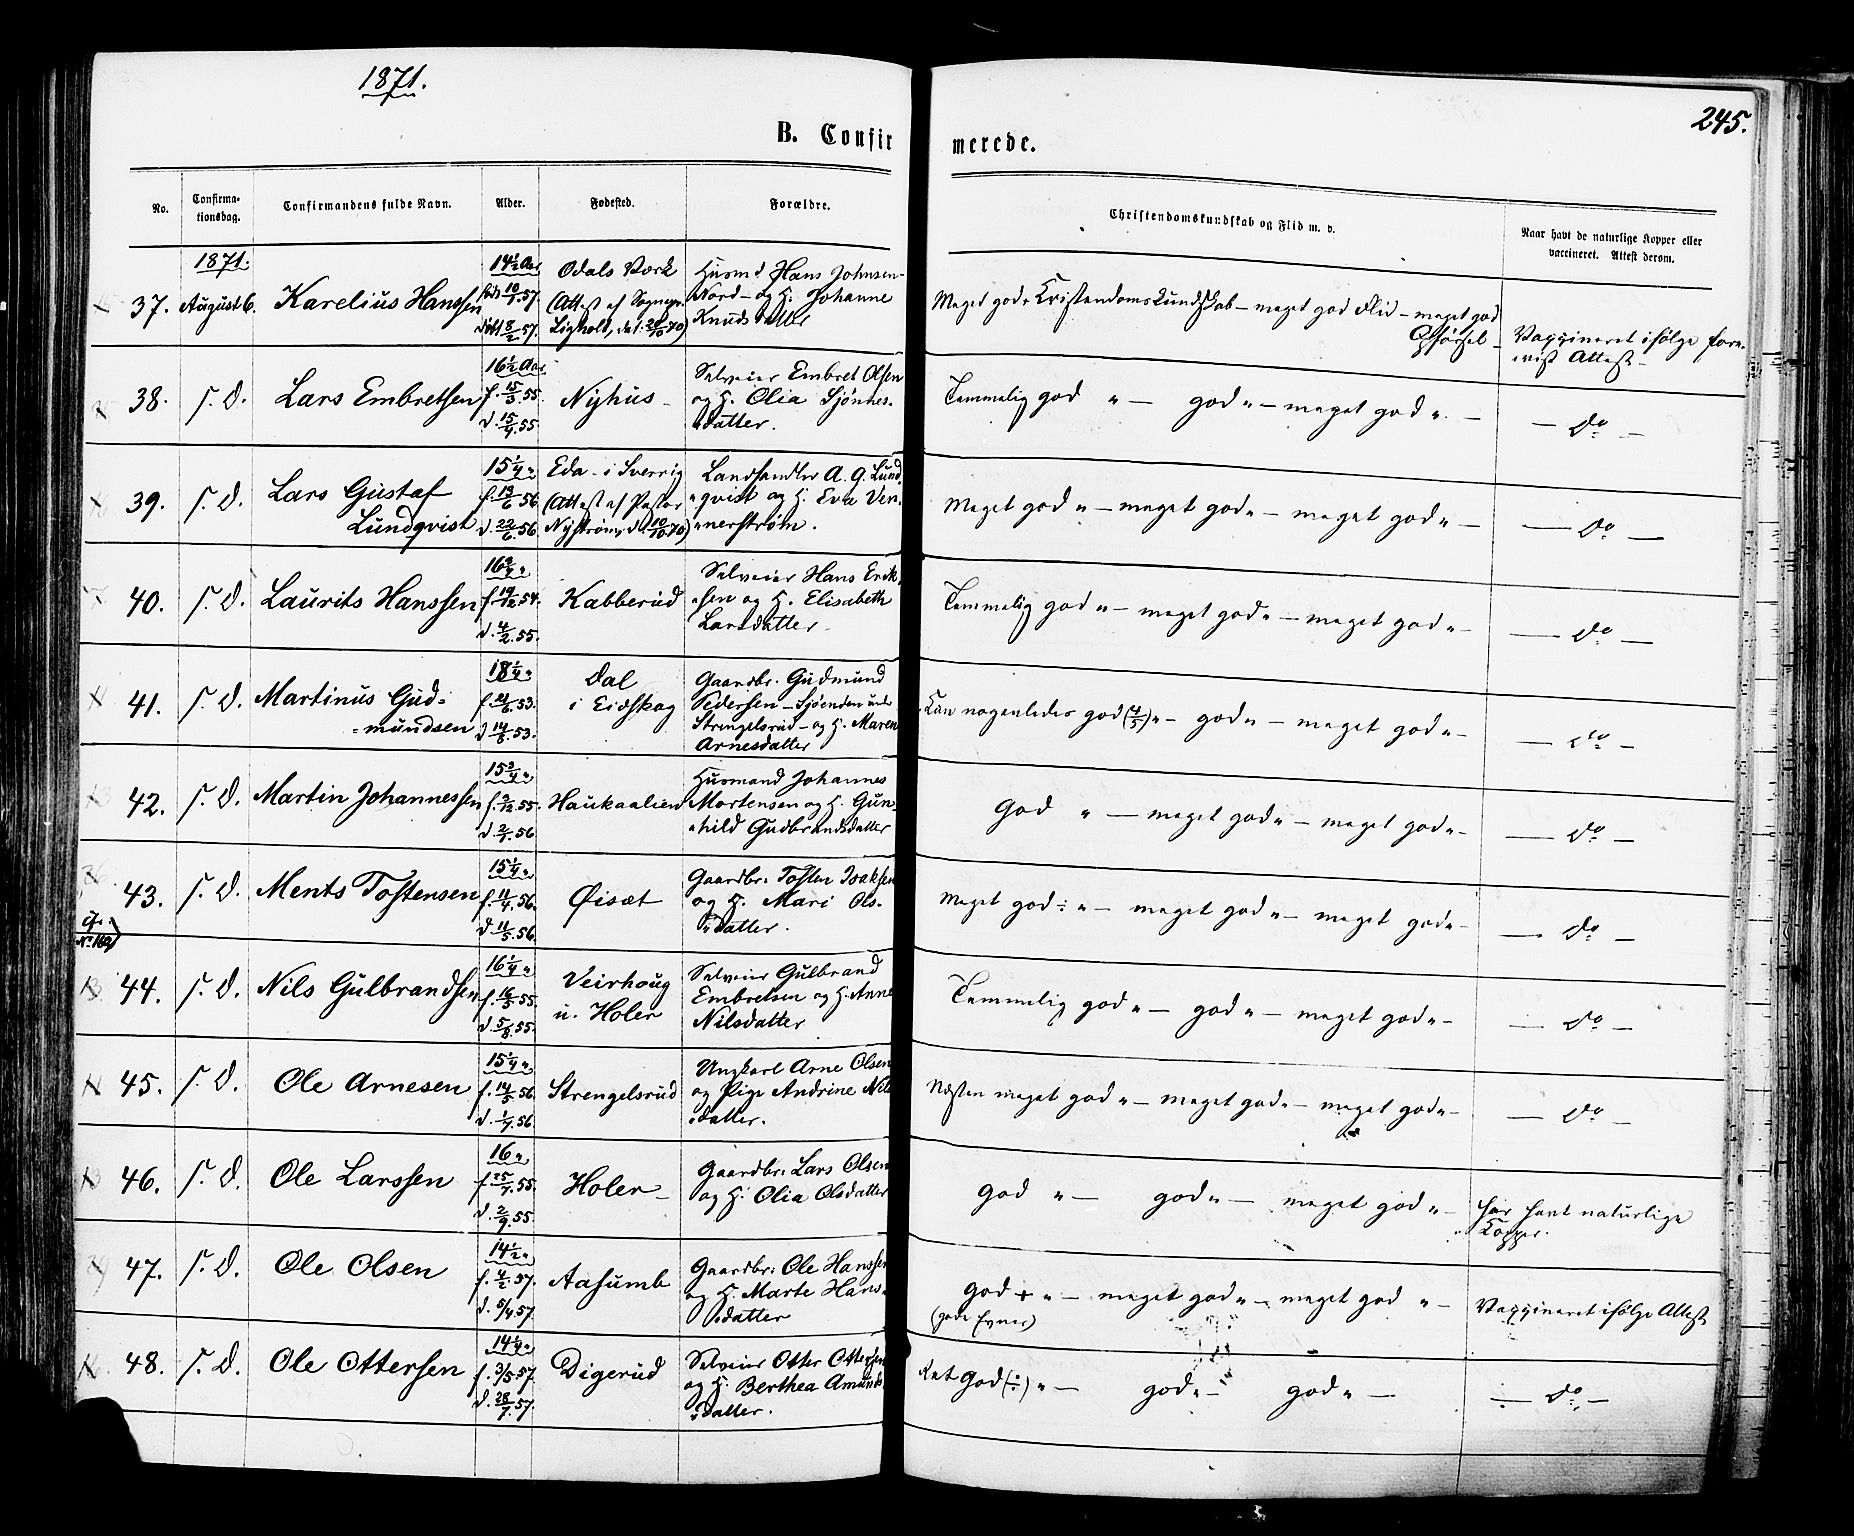 1871.
245.
B. Confirmerede.
No. Confirmationsdag. Confirmandens fulde Navn. Alder. Fødested. Forældre. Christendomskundskab og Flid m. v. Naar havt de naturlige Kopper eller vaccineret. Attest derom.
1871.
37. August 6. Karelius Hanssen
14½ Aar
født 10/1 57.
døbt 8/2 57.
Odals Værk
(Attest af Sognepr.
Lignold, dat. 20/10 70)
Husmd Hans Johnsen-
Nord- og H. Johanne
Knudsdatter
Meget god Kristendomskundskab – meget god Flid – meget god
Opførsel –
Vaccineret ifølge fore-
vist Attest –
38. s. d. Lars Embretsen
16½ Aar
f. 15/3 55.
d. 15/4 55.
Nyhus –
Selveier Embret Olsen
og H. Olia Sjønnes-
datter.
Temmelig god " – god " – meget god " –
– do –
39. s. d. Lars Gustaf
Lundqvist
15¼ "
f. 19/6 56
d. 22/6 56
Eda – i Sverrig
(Attest af Pastor
Nystrøm, d. 10/10 70)
Landhandler A. G. Lund-
qvist og H. Eva Ven-
nerstrøm.
Meget god " – meget god " – meget god " –
– do –
40. s. d. Laurits Hanssen
16¾ "
f. 19/12 54.
d. 4/2 55.
Kabberud
Selveier Hans Erik-
sen og H. Elisabeth
Larsdatter –
Temmelig god " – meget god " – meget god " –
– do –
41. s. d. Martinus Gud-
mundsen
18¼ "
f. 21/5 53.
d. 14/8 53.
Dal
i Eidskog
Gaardbr. Gudmund
Pedersen – Sjøenden und.
Strengelsrud – og H. Maren
Arnesdatter
Kun nogenledes god (4/5) " – god " – meget god " –
– do –
42. s. d. Martin Johannessen
15¾ "
f. 2/12 55.
d. 2/1 56
Haukaalien
Husmand Johannes
Mortensen og H. Gun-
hild Gudbrandsdatter
God " – meget god " – meget god " –
– do –
43. s. d. Ments Tostensen
15¼ "
f. 11/4 56.
d. 11/5 56.
Øisæt
Gaardbr: Tosten Isaksen
og H. Mari Ols-
datter.
Meget god ÷ " – meget god " – meget god " –
– do –
cfr.
No. 169)
44. s. d. Nils Gulbrandsen
16¼ "
f. 16/5 55.
d. 5/8 55.
Veirhoug
u. Holer
Selveier Gulbrand
Embretsen og H. Anne
Nilsdatter
Temmelig god " – god " – meget god " –
– do –
45. s. d. Ole Arnesen
15¼ "
f. 14/5 56.
d. 1/7 56
Strengelsrud
Ungkarl Arne Olsen
og Pige Andrine Nils-
datter.
Næsten meget god " – meget god " – meget god " –
– do –
46. s. d. Ole Larssen
16 "
f. 25/7 55.
d. 2/9 55.
Holer –
Gaardbr: Lars Olsen
og H. Olia Olsdatter
God " – god " – meget god " –
har havt naturlige
Kopper.
47. s. d. Ole Olsen
14½ "
f. 4/2 57.
d. 5/4 57.
Aasumb
Gaardbr: Ole Hanssen
og H. Marte Hans-
datter
God + " – meget god " – meget god " –
(gode Evner)
Vaccineret ifølge Attest
48. s. d. Ole Ottersen
14¼ "
f. 3/5 57.
d. 28/7 57.
Digerud
Selveier Otter Ottersen
og H. Berthea Amunds-
datter.
Ret god (÷) " – god " – god " –
– do –